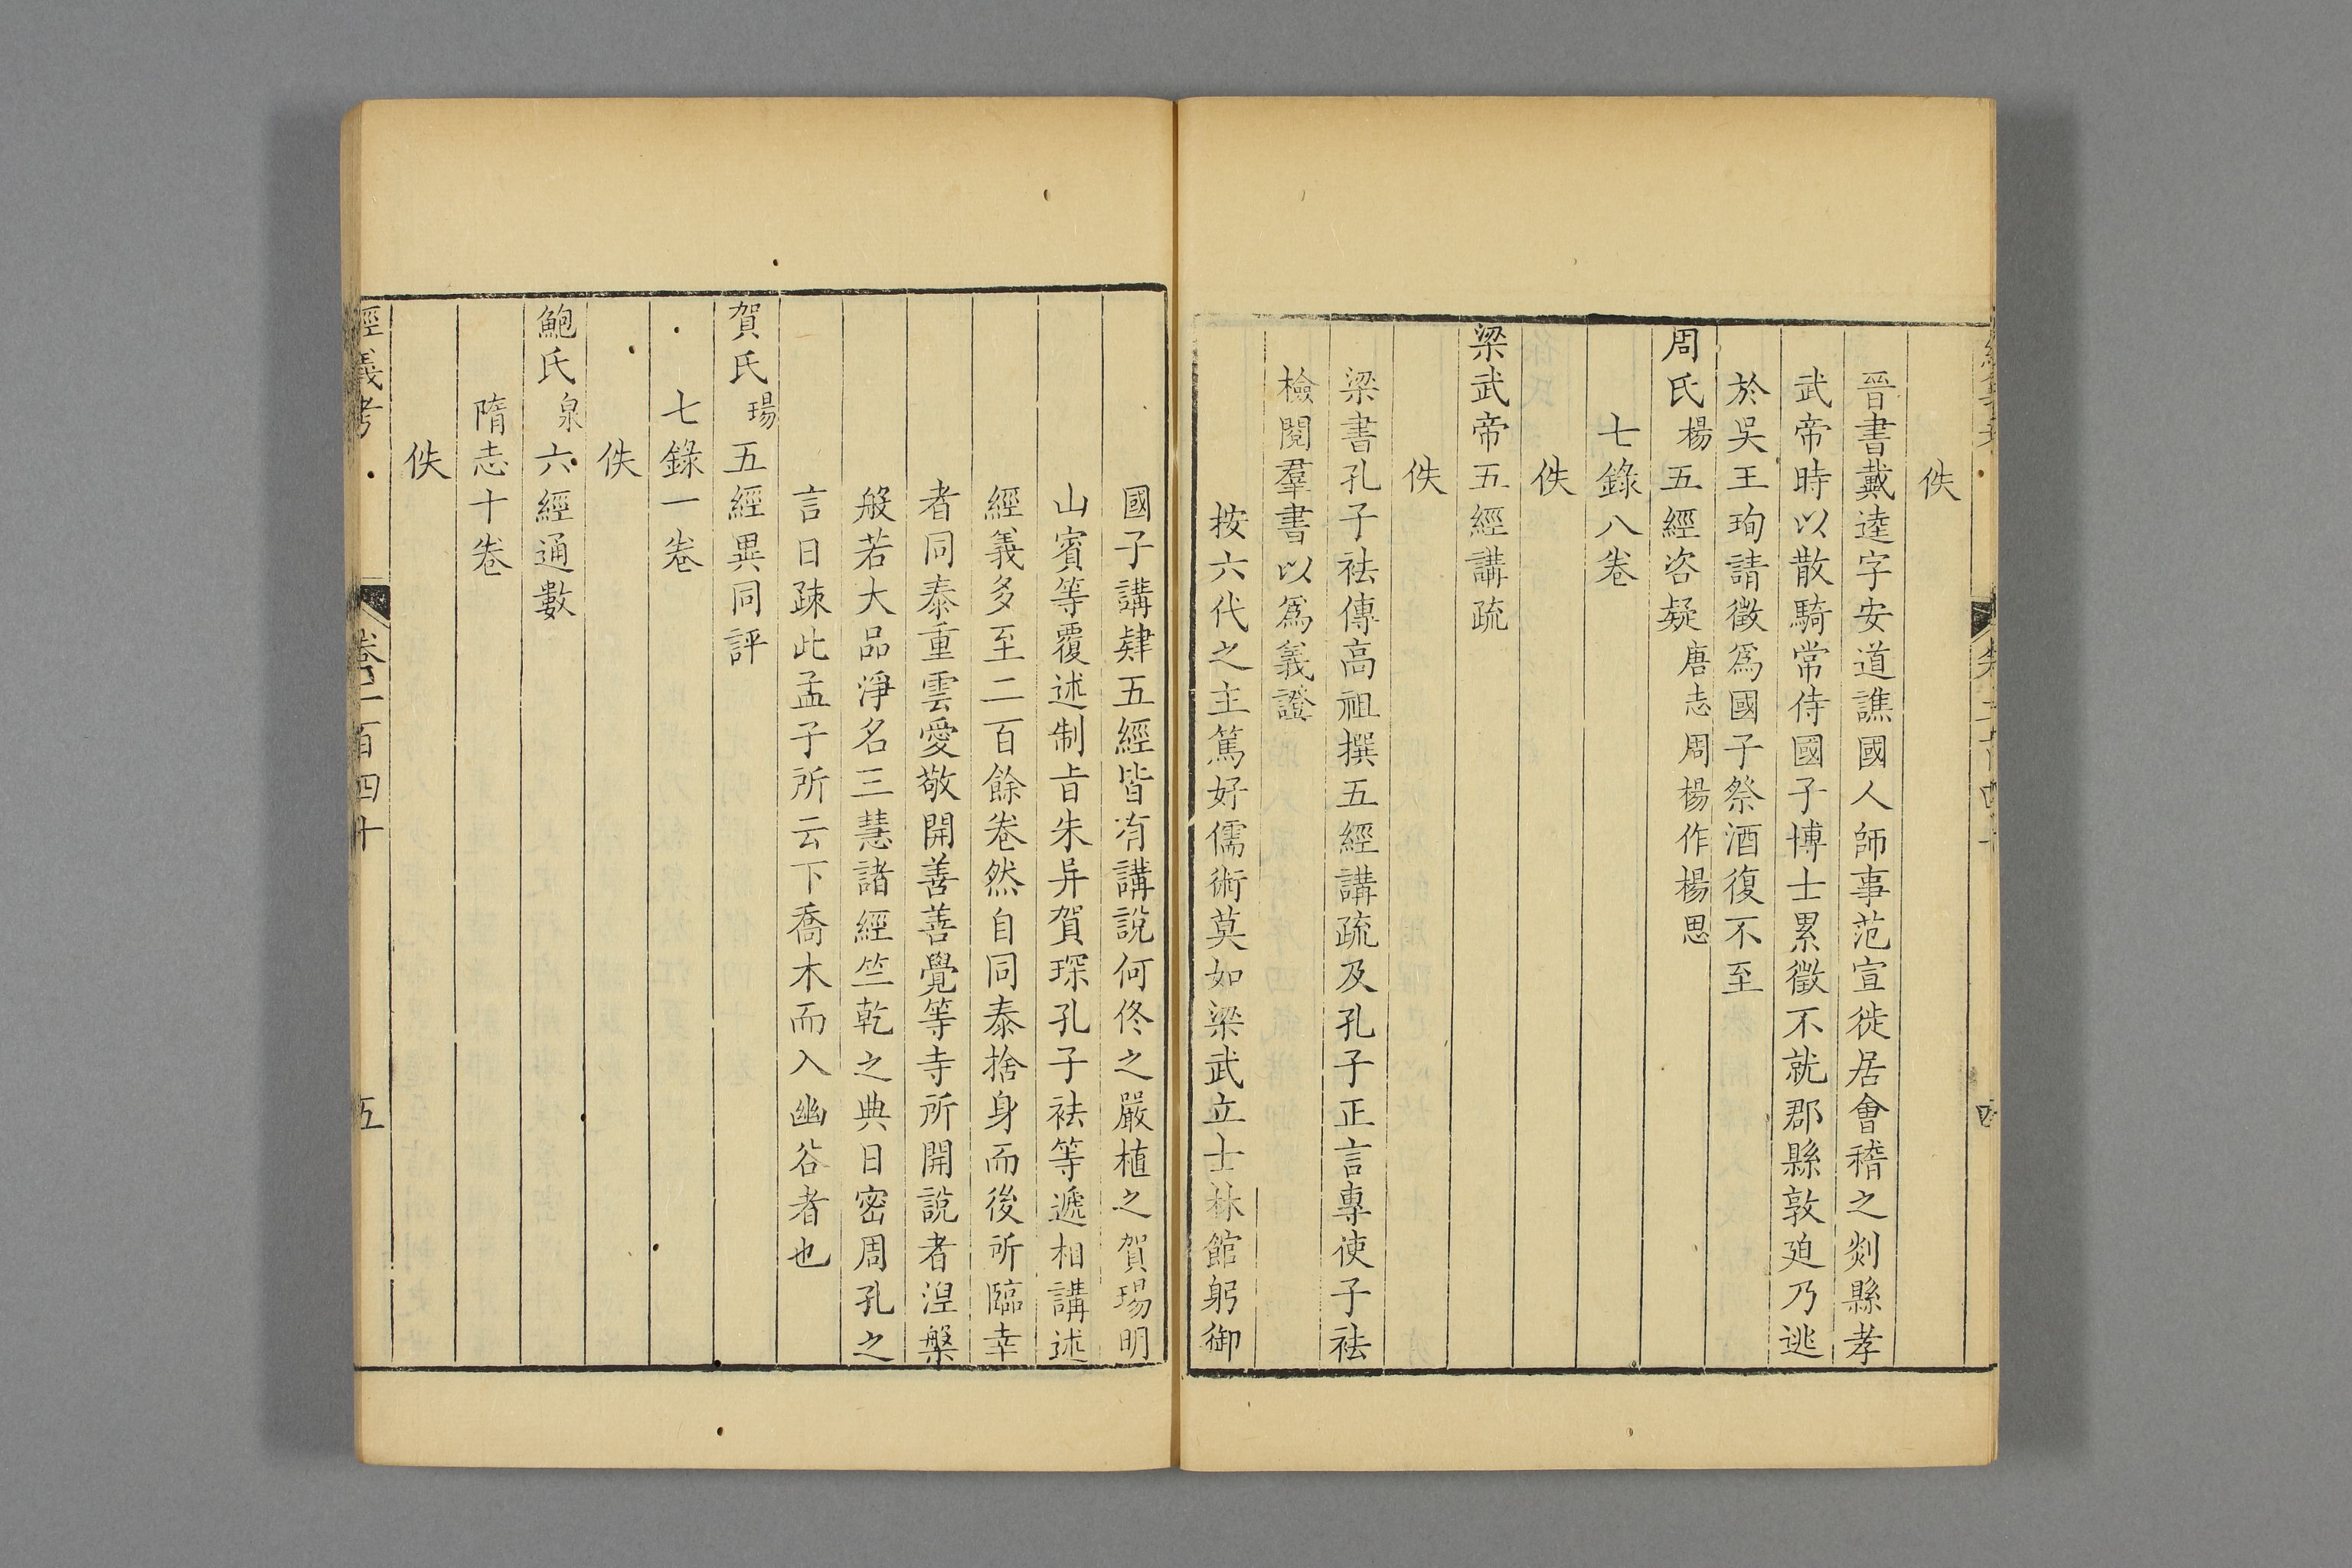 佚
晉書戴逵字安道譙國人師事范宣徙居會稽之剡縣孝
武帝時以散騎常侍國子博士累徵不就郡縣敦廹乃逃
於吳王珣請徵爲國子祭酒復不至
周氏楊五經咨疑唐志周楊作楊思
七錄八卷
佚
梁武帝五經講疏
佚
梁書孔子袪傳高祖撰五經講疏及孔子正言專使子袪
檢閱羣書以爲義證
按六代之主篤好儒術莫如梁武立士林館躬御
國子講肄五經皆有講說何佟之嚴植之賀瑒明
山賓等覆述制旨朱异賀琛孔子袪等遞相講述
經義多至二百餘卷然自同泰捨身而後所臨幸
者同泰重雲愛敬開善善覺等寺所開說者涅槃
般若大品淨名三慧諸經竺乾之典日密周孔之
言日疎此孟子所云下喬木而入幽谷者也
賀氏瑒五經異同評
七錄一卷
佚
鮑氏泉六經通數
隋志十卷
佚
經義考 卷二百四十 五